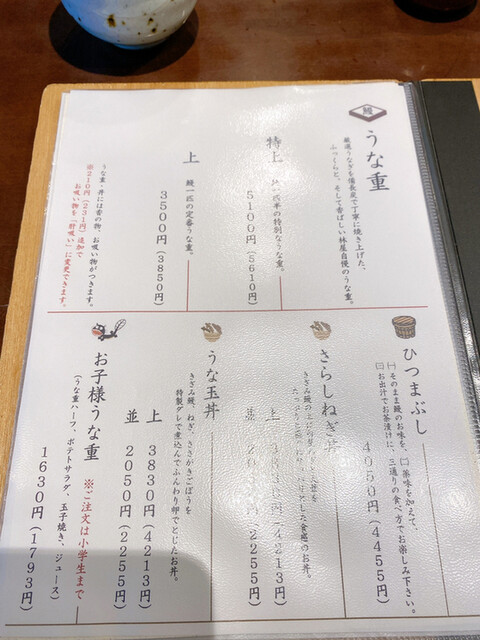 鰻
うな重
厳選うなぎを備長炭で丁寧に焼き上げた、
ふっくらと、そして香ばしい林屋自慢のうな重。
特上
鰻一匹半の特別なうな重。
5100円(5610円)
上
鰻一匹の定番うな重。
3500円(3850円)
うな重・丼には香の物、お吸い物がつきます。
※210円(231円)追加で
お吸い物を「肝吸い」に変更できます。
ひつまぶし
㈠そのまま鰻のお味を、㈡薬味を加えて、
㈢お出汁でお茶漬けに、三通りの食べ方でお楽しみ下さい。
4050円(4455円)
さらしねぎ丼
きざみ鰻の上に
たっぷりと
とした食感のお丼。
上 3830円(4213円)
並 2050円(2255円)
うな玉丼
きざみ鰻、ねぎ、ささがきごぼうを
特製ダレで煮込んでふんわり卵でとじたお丼。
上 3830円(4213円)
並 2050円(2255円)
お子様うな重 ※ご注文は小学生まで
(うな重ハーフ、ポテトサラダ、玉子焼き、ジュース)
1630円(1793円)